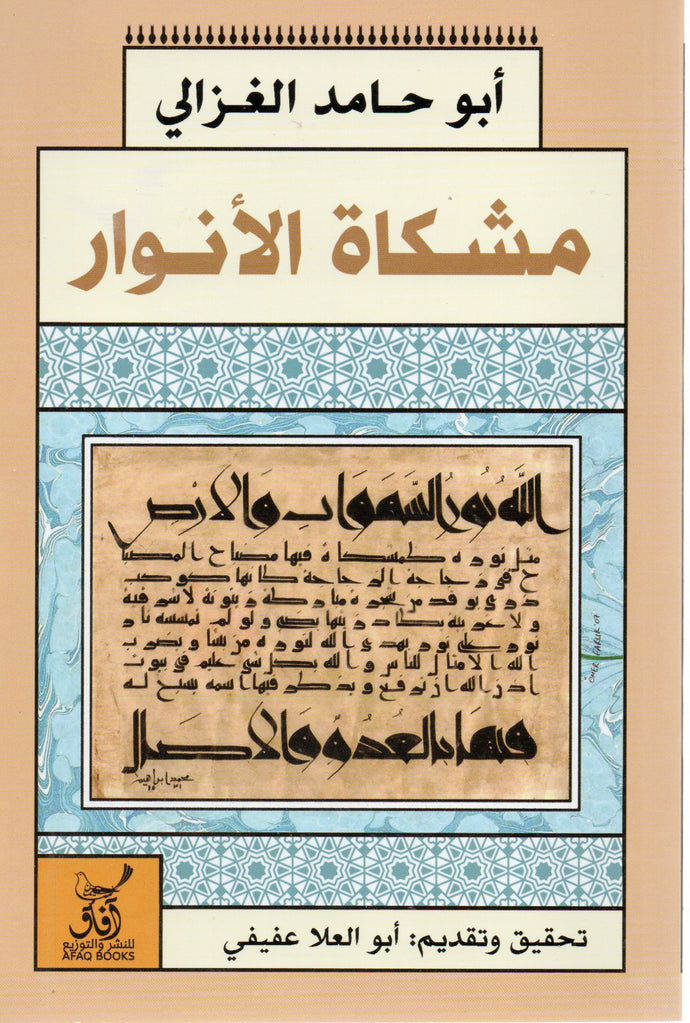 أبو حامد الغزالي
مشكاة الأنوار
اللَّه نُورُ السَّمَوَاتِ وَالارْضِ
مثل نوره كمشكاة فيها مصباح المصبا
ح في زجاجة الزجاجة كانها كوكب
دري يوقد من شجرة مباركة زيتونة لا شرقية
ولا غربية يكاد زيتها يضي ولو لم تمسسه نار
نور على نور يهدي الله لنوره من يشا ويضرب
الله الامثال للناس والله بكل شي عليم في بيوت
اذن الله ان ترفع ويذكر فيها اسمه يسبح له
فيها بالغُدُوِّ وَالاصَال
محمد ابراهيم
ÖMER FARUK '07
آفاق
للنشر والتوزيع
AFAQ BOOKS
تحقيق وتقديم: أبو العلا عفيفي